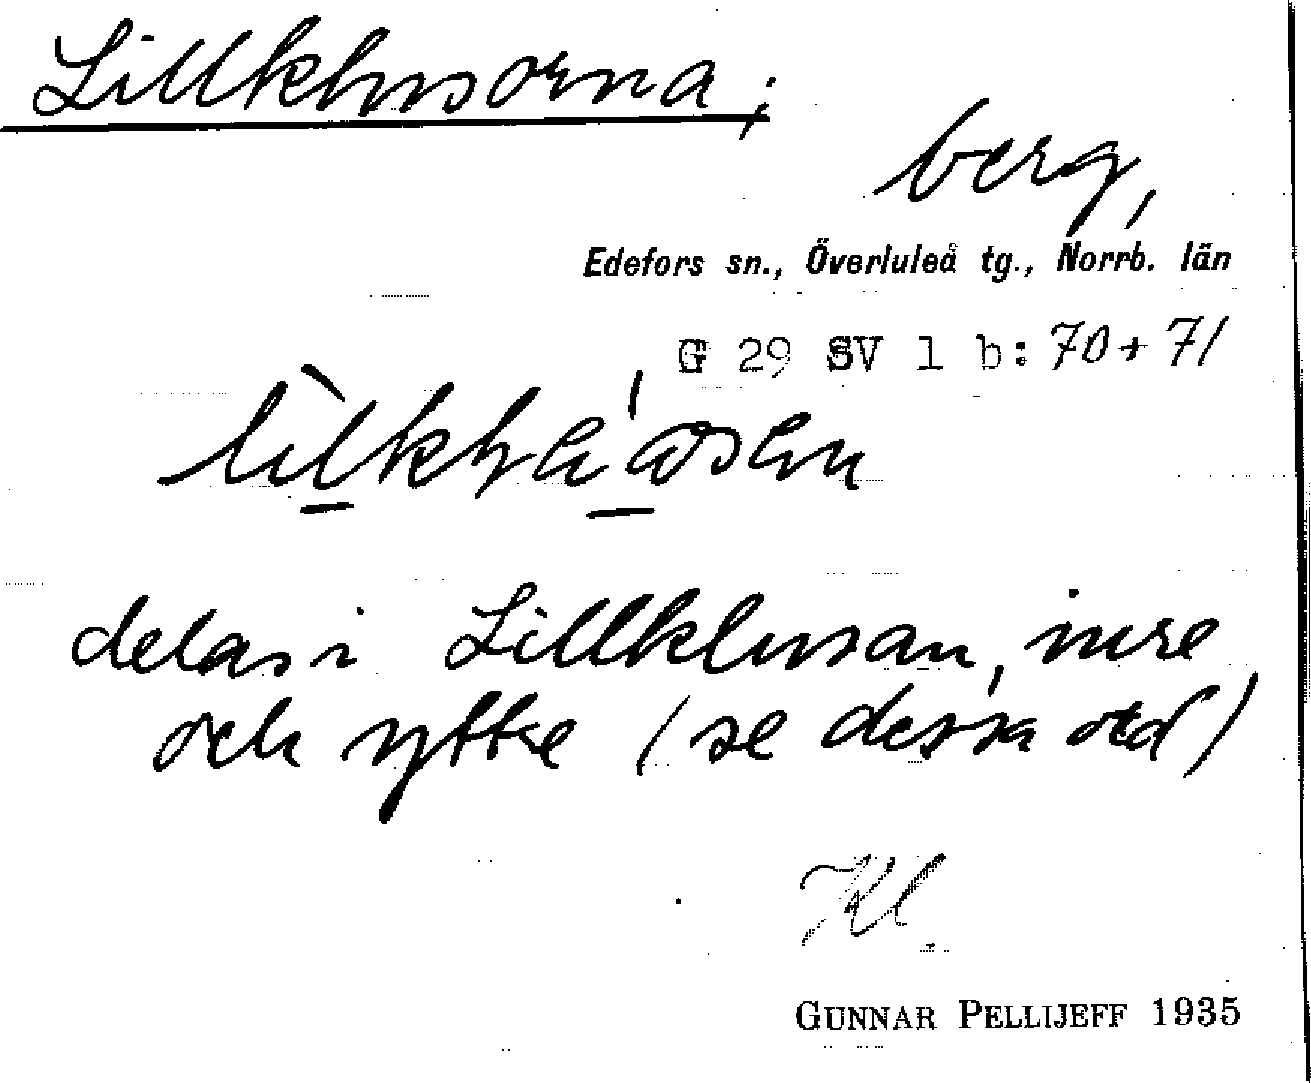 Lillklusorna;
berg,
Edefors sn., Överluleå tg., Norrb. län
G 29 SV 1 b: 70 + 71
delas i Lillklusan, inre
och yttre (se dessa ord)
Kl.
GUNNAR PELLIJEFF 1935